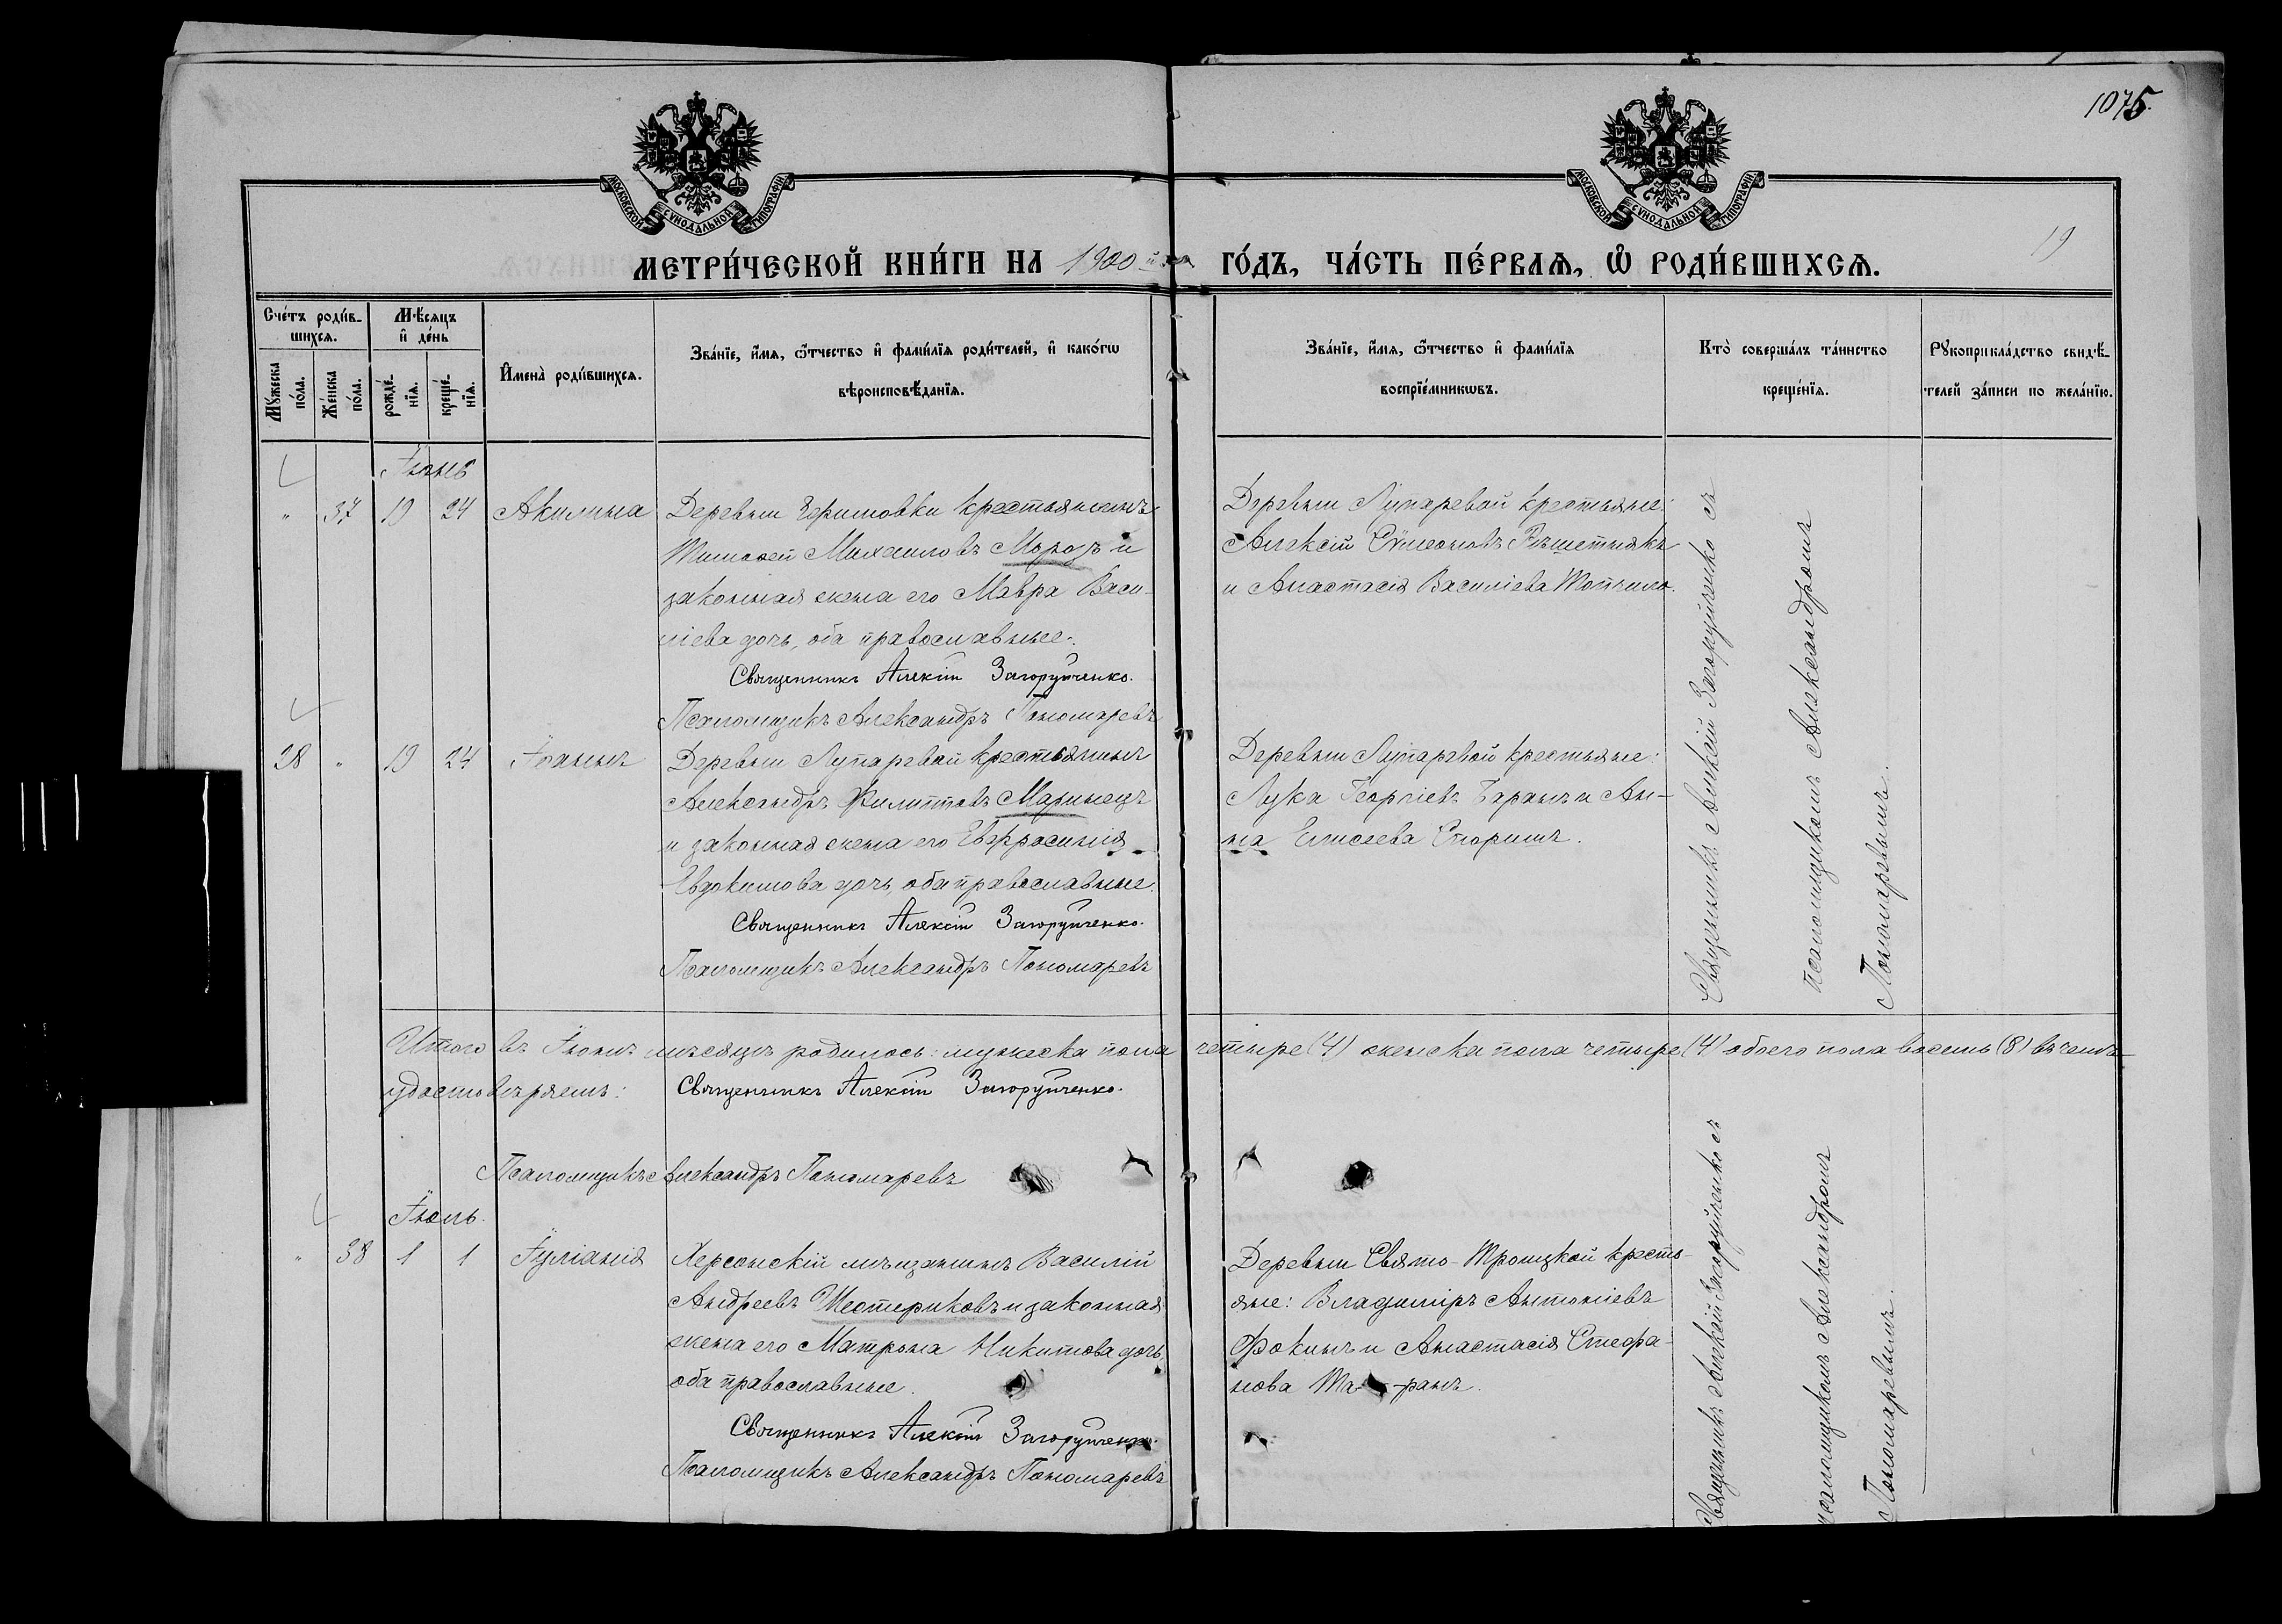 1075.
МОСКОВСКОЙ СѴНОДАЛЬНОЙ ТИПОГРАФІИ
МОСКОВСКОЙ СѴНОДАЛЬНОЙ ТИПОГРАФІИ
19
МЕТРИ́ЧЕСКОЙ КНИ́ГИ НА 1900 й ГО́ДЪ, ЧА́СТЬ ПЕ́РВАѦ, Ѡ҆ РОДИ́ВШИХСѦ.
Сче́тъ роди́в-
шихсѧ.
Мꙋжеска по́ла.
Же́нска по́ла.
Мѣ́сѧцъ
и҆ де́нь
рожде́-
нїѧ.
креще́-
нїѧ.
И҆мена̀ роди́вшихсѧ.
Зва́нїе, и҆́мѧ, ѻ҆́тчество и҆ фами́лїѧ роди́телей, и҆ како́гѡ
вѣроисповѣ́данїѧ.
Зва́нїе, и҆́мѧ, ѻ҆́тчество и҆ фами́лїѧ
воспрїе́мникѡвъ.
Кто̀ соверша́лъ та́инство
креще́нїѧ.
Рꙋкоприкла́дство свидѣ́-
телей за́писи по жела́нїю.
Іюнь
" 37 19 24 Акилина
Деревни Ефимовки крестьянинъ
Тимоѳей Михаиловъ Морозъ и
законная жена его Мавра Васи-
ліева дочь, оба православные.
Священникъ Алексій Загоруйченко.
Псаломщикъ Александръ Пономаревъ
Деревни Лупаревой крестьяне:
Алексій Сѵмеоновъ Рѣшетнякъ
и Анастасія Василіева
38 " 19 24 Іоаннъ
Деревни Лупаревой крестьянинъ
Александръ Филипповъ Маринецъ
и законная жена его Евфросинія
Евдокимова дочь, оба православные.
Священникъ Алексій Загоруйченко.
Псаломщикъ Александръ Пономаревъ
Деревни Лупаревой крестьяне:
Лука Георгіевъ Баранъ и Ан-
на Елисеева Споришъ.
Священникъ Алексій Загоруйченко съ
псаломщикомъ Александромъ
Пономаревымъ.
Итого въ Іюнѣ мѣсяцѣ родилось: мужеска пола четыре (4) женска пола четыре (4) обоего пола восемь (8) въ чемъ
удостовѣряемъ: Священникъ Алексій Загоруйченко.
Псаломщикъ Александръ Пономаревъ
Іюль.
" 38 1 1 Іуліанія
Херсонскій мѣщанинъ Василій
Андреевъ Шестериковъ и законная
жена его Матрона Никитова дочь,
оба православные.
Священникъ Алексій Загоруйченко.
Псаломщикъ Александръ Пономаревъ
Деревни Свято-Троицкой кресть-
яне: Владиміръ Антоніевъ
Фокинъ и Анастасія Стефа-
нова
Священникъ Алексій Загоруйченко съ
псаломщикомъ Александромъ
Пономаревымъ.